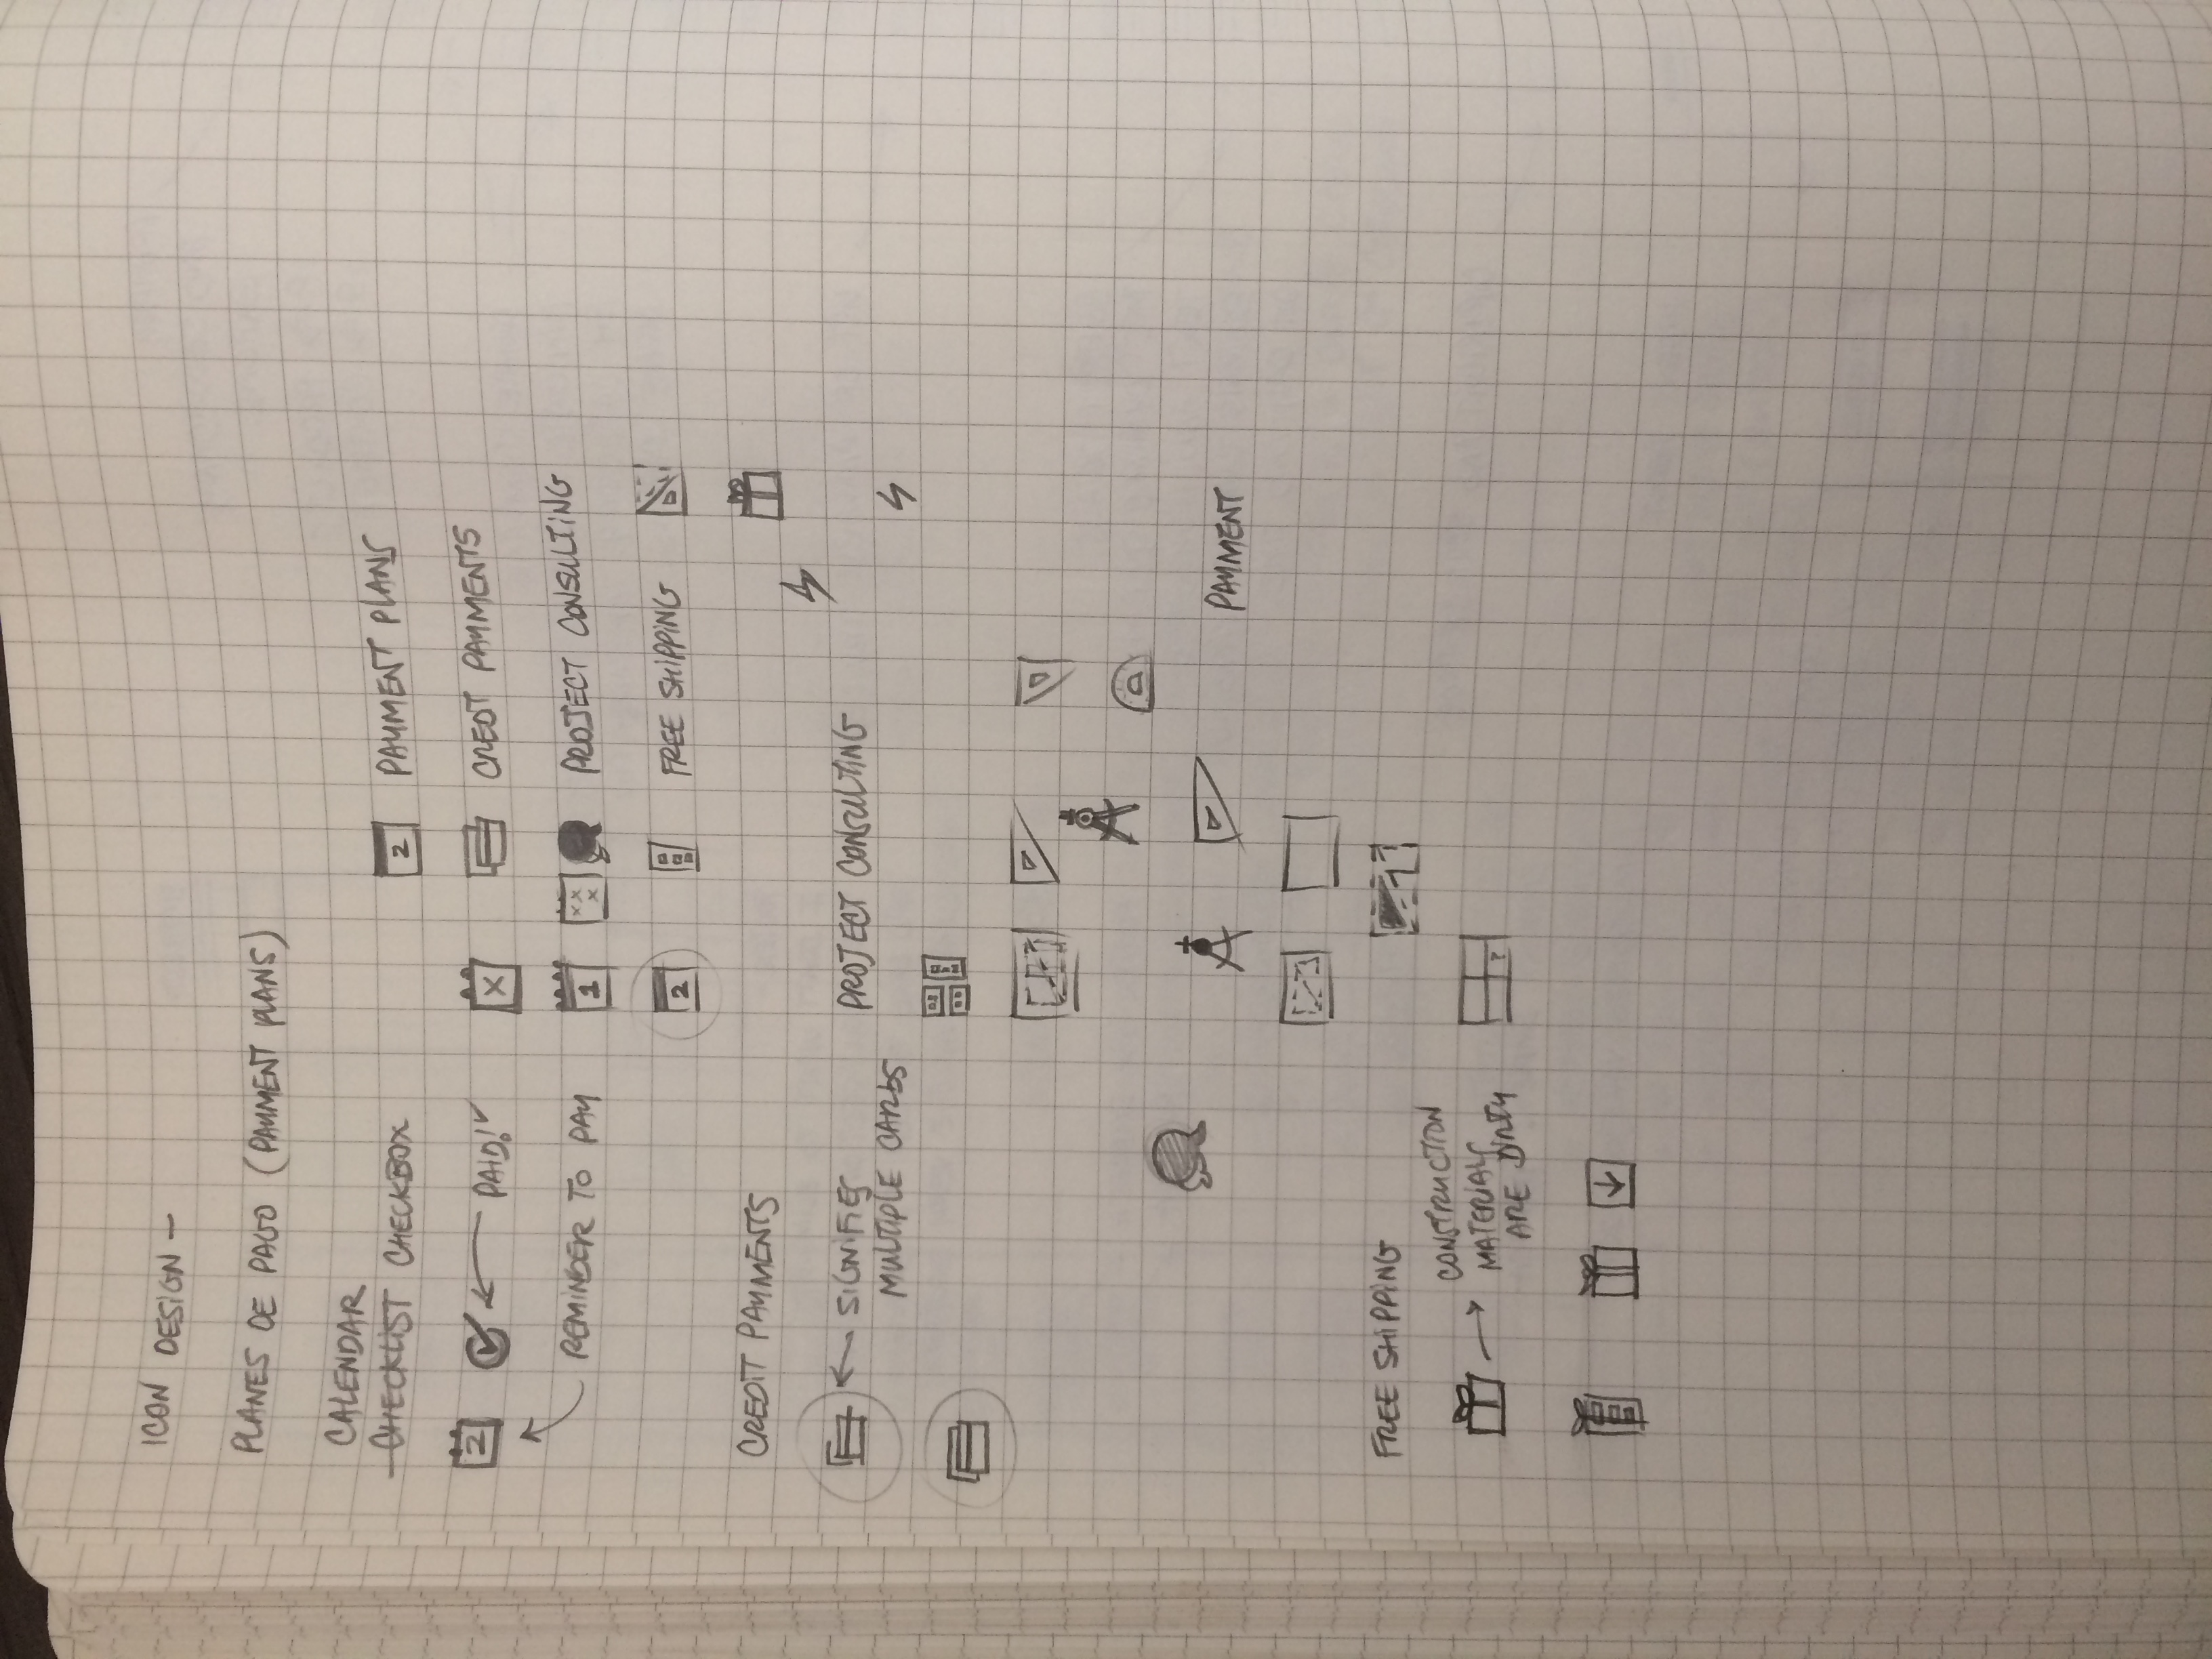 ICON DESIGN —
PLANES DE PAGO (PAYMENT PLANS)
CALENDAR
CHECKLIST CHECKBOX
2 PAYMENT PLANS
2 PAID! X CREDT PAYMENTS
REMINDER TO PAY 1 X X X PROJECT CONSULTING
2 FREE SHIPPING
CREDIT PAYMENTS
SIGNIFIES
MULTIPLE CARDS
PROJECT CONSULTING
PAYMENT
FREE SHIPPING
CONSTRUCTION
MATERIALS
ARE DIRTY